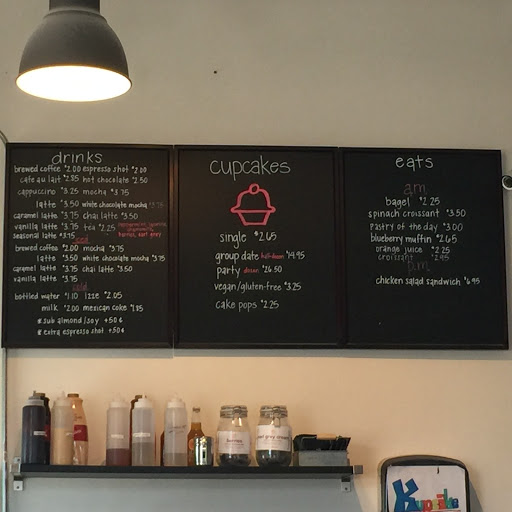 drinks
brewed coffee $2.00 espresso shot $2.00
cafe au lait $2.85 hot chocolate $2.50
cappuccino $3.25 mocha $3.75
latte $3.50 white chocolate mocha $3.75
caramel latte $3.75 chai latte $3.50
vanilla latte $3.75 tea $2.25
seasonal latte $3.95
iced
brewed coffee $2.00 mocha $3.75
latte $3.50 white chocolate mocha $3.75
caramel latte $3.75 chai latte $3.50
vanilla latte $3.75
cold
bottled water $1.10 izze $2.05
milk $2.00 mexican coke $1.85
*sub almond/soy +50¢
*extra espresso shot +50¢
cupcakes
single $2.65
group date half-dozen $14.95
party dozen $26.50
vegan/gluten-free $3.25
cake pops $2.25
eats
a.m.
bagel $2.25
spinach croissant $3.50
pastry of the day $3.00
blueberry muffin $2.65
orange juice $2.25
croissant $2.95
p.m.
chicken salad sandwich $6.95